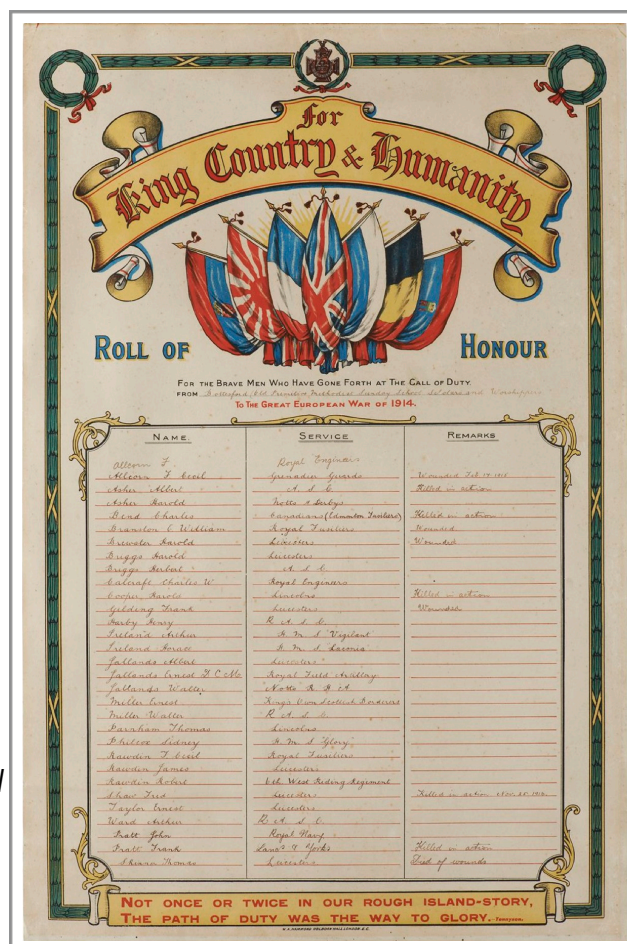 For
King Country & Humanity
ROLL OF HONOUR
FOR THE BRAVE MEN WHO HAVE GONE FORTH AT THE CALL OF DUTY.
FROM Bottesford Old Primitive Methodist Sunday School Scholars and Worshippers
TO THE GREAT EUROPEAN WAR OF 1914.
NAME. SERVICE REMARKS
Allcorn F. Royal Engineers
Allcorn F Cecil Grenadier Guards Wounded Feb
Asher Albert A. S. C. Killed in action
Asher Harold Notts & Derbys
Bond Charles Canadians (Edmonton Fusiliers) Killed in action
Branston C William Royal Fusiliers Wounded
Brewster Harold Leicesters Wounded
Briggs Harold Leicesters
Briggs Herbert A. S. C.
Calcraft Charles W Royal Engineers
Cooper Harold Lincolns Killed in action
Gelding Frank Leicesters Wounded
Harby Henry R. A. S. C.
Ireland Arthur H. M. S "Vigilant"
Ireland Horace H. M. S
Jallands Albert Leicesters
Jallands Ernest D C M. Royal Field Artillery
Jallands Walter Notts R H A
Miller Ernest Kings Own Scottish Borderers
Miller Walter R. A. S. C.
Parnham Thomas Lincolns
Philcox Sidney H. M. S "Glory"
Rawdin F Cecil Royal Fusiliers
Rawdin James Leicesters
Rawdin Robert 6th West Riding Regiment
Shaw Fred Leicesters Killed in action Nov. 25
Taylor Ernest Leicesters
Ward Arthur R. A. S. C.
Pratt John Royal Navy
Pratt Frank Lancs & Yorks Killed in action
Skerrin Thomas Leicesters Died of wounds
NOT ONCE OR TWICE IN OUR ROUGH ISLAND-STORY,
THE PATH OF DUTY WAS THE WAY TO GLORY. - Tennyson.